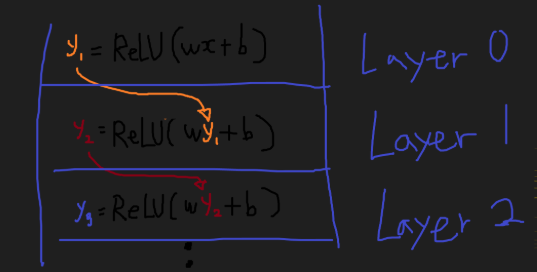 y₁ = ReLU(wx+b) Layer 0
y₂ = ReLU(wy₁+b) Layer 1
y₃ = ReLU(wy₂+b) Layer 2